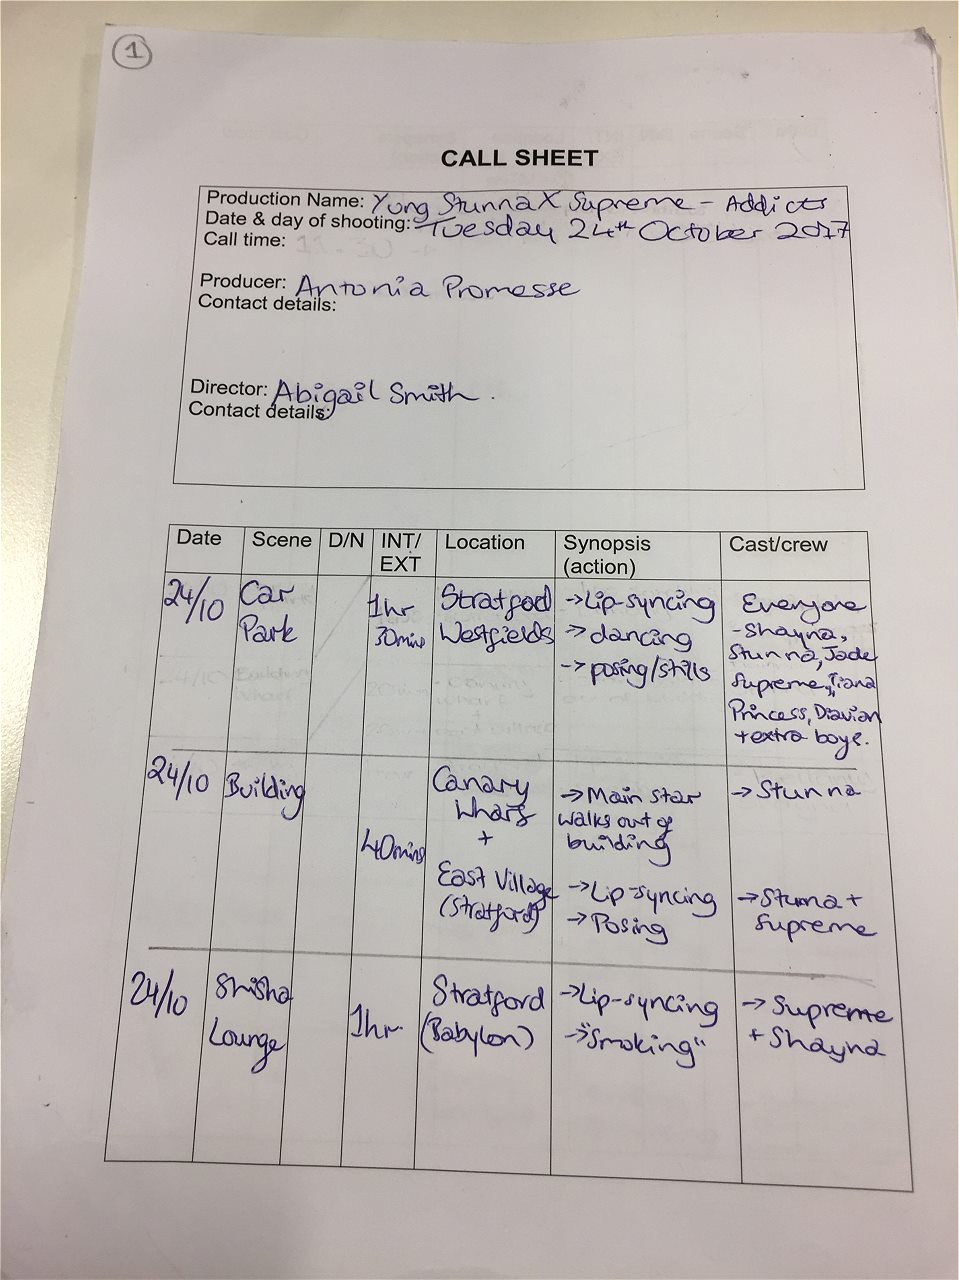 1
CALL SHEET
Production Name: Yung Stunna X Supreme - Addicts
Date & day of shooting: Tuesday 24th October 2017
Call time: 11.30
Producer: Antonia Promesse
Contact details:
Director: Abigail Smith.
Contact details:
Date Scene D/N INT/ EXT Location Synopsis (action) Cast/crew
24/10
Car
Park
1hr
30mins
Stratford
Westfields
→Lip-syncing
→dancing
→posing/stills
Everyone
-Shayna,
Stunna, Jade
Supreme, Tiana
Princess, Diavian
+ extra boys.
24/10
Building
40mins
Canary
Wharf
+
East Village
(Stratford)
→Main star
walks out of
building
→Lip-syncing
→Posing
→Stunna
→Stunna +
Supreme
24/10
Shisha
Lounge
1hr.
Stratford
(Babylon)
→Lip-syncing
→"Smoking"
→Supreme
+ Shayna